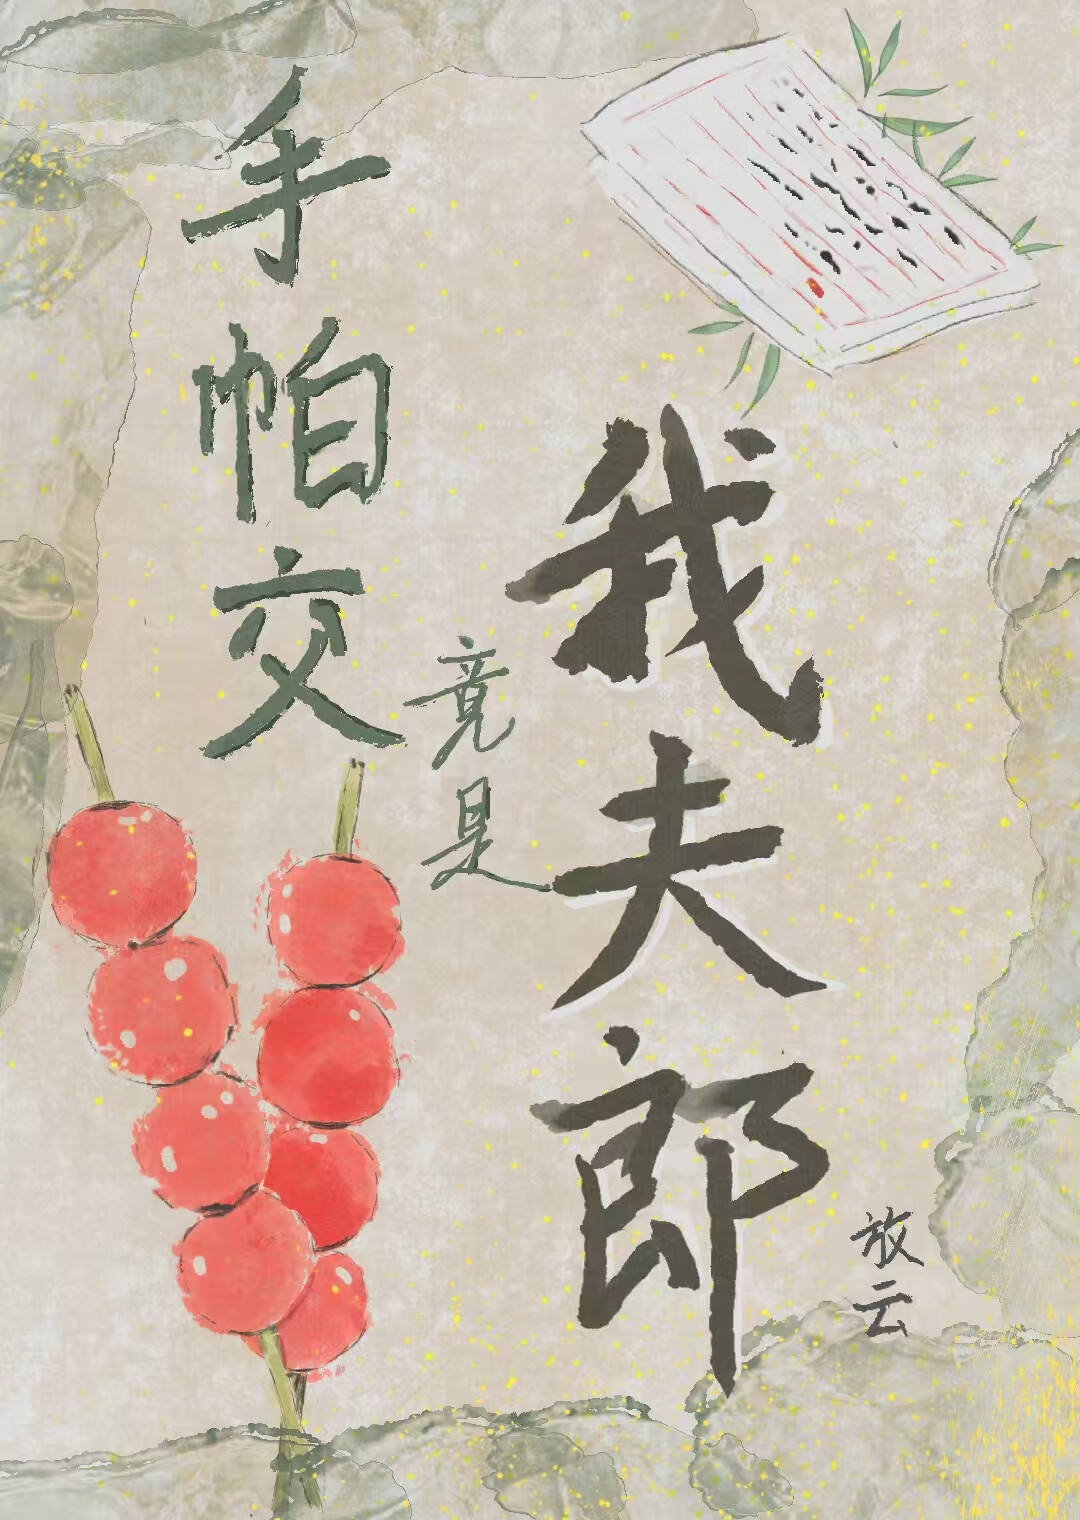 手帕交
竟是
我夫郎
放云